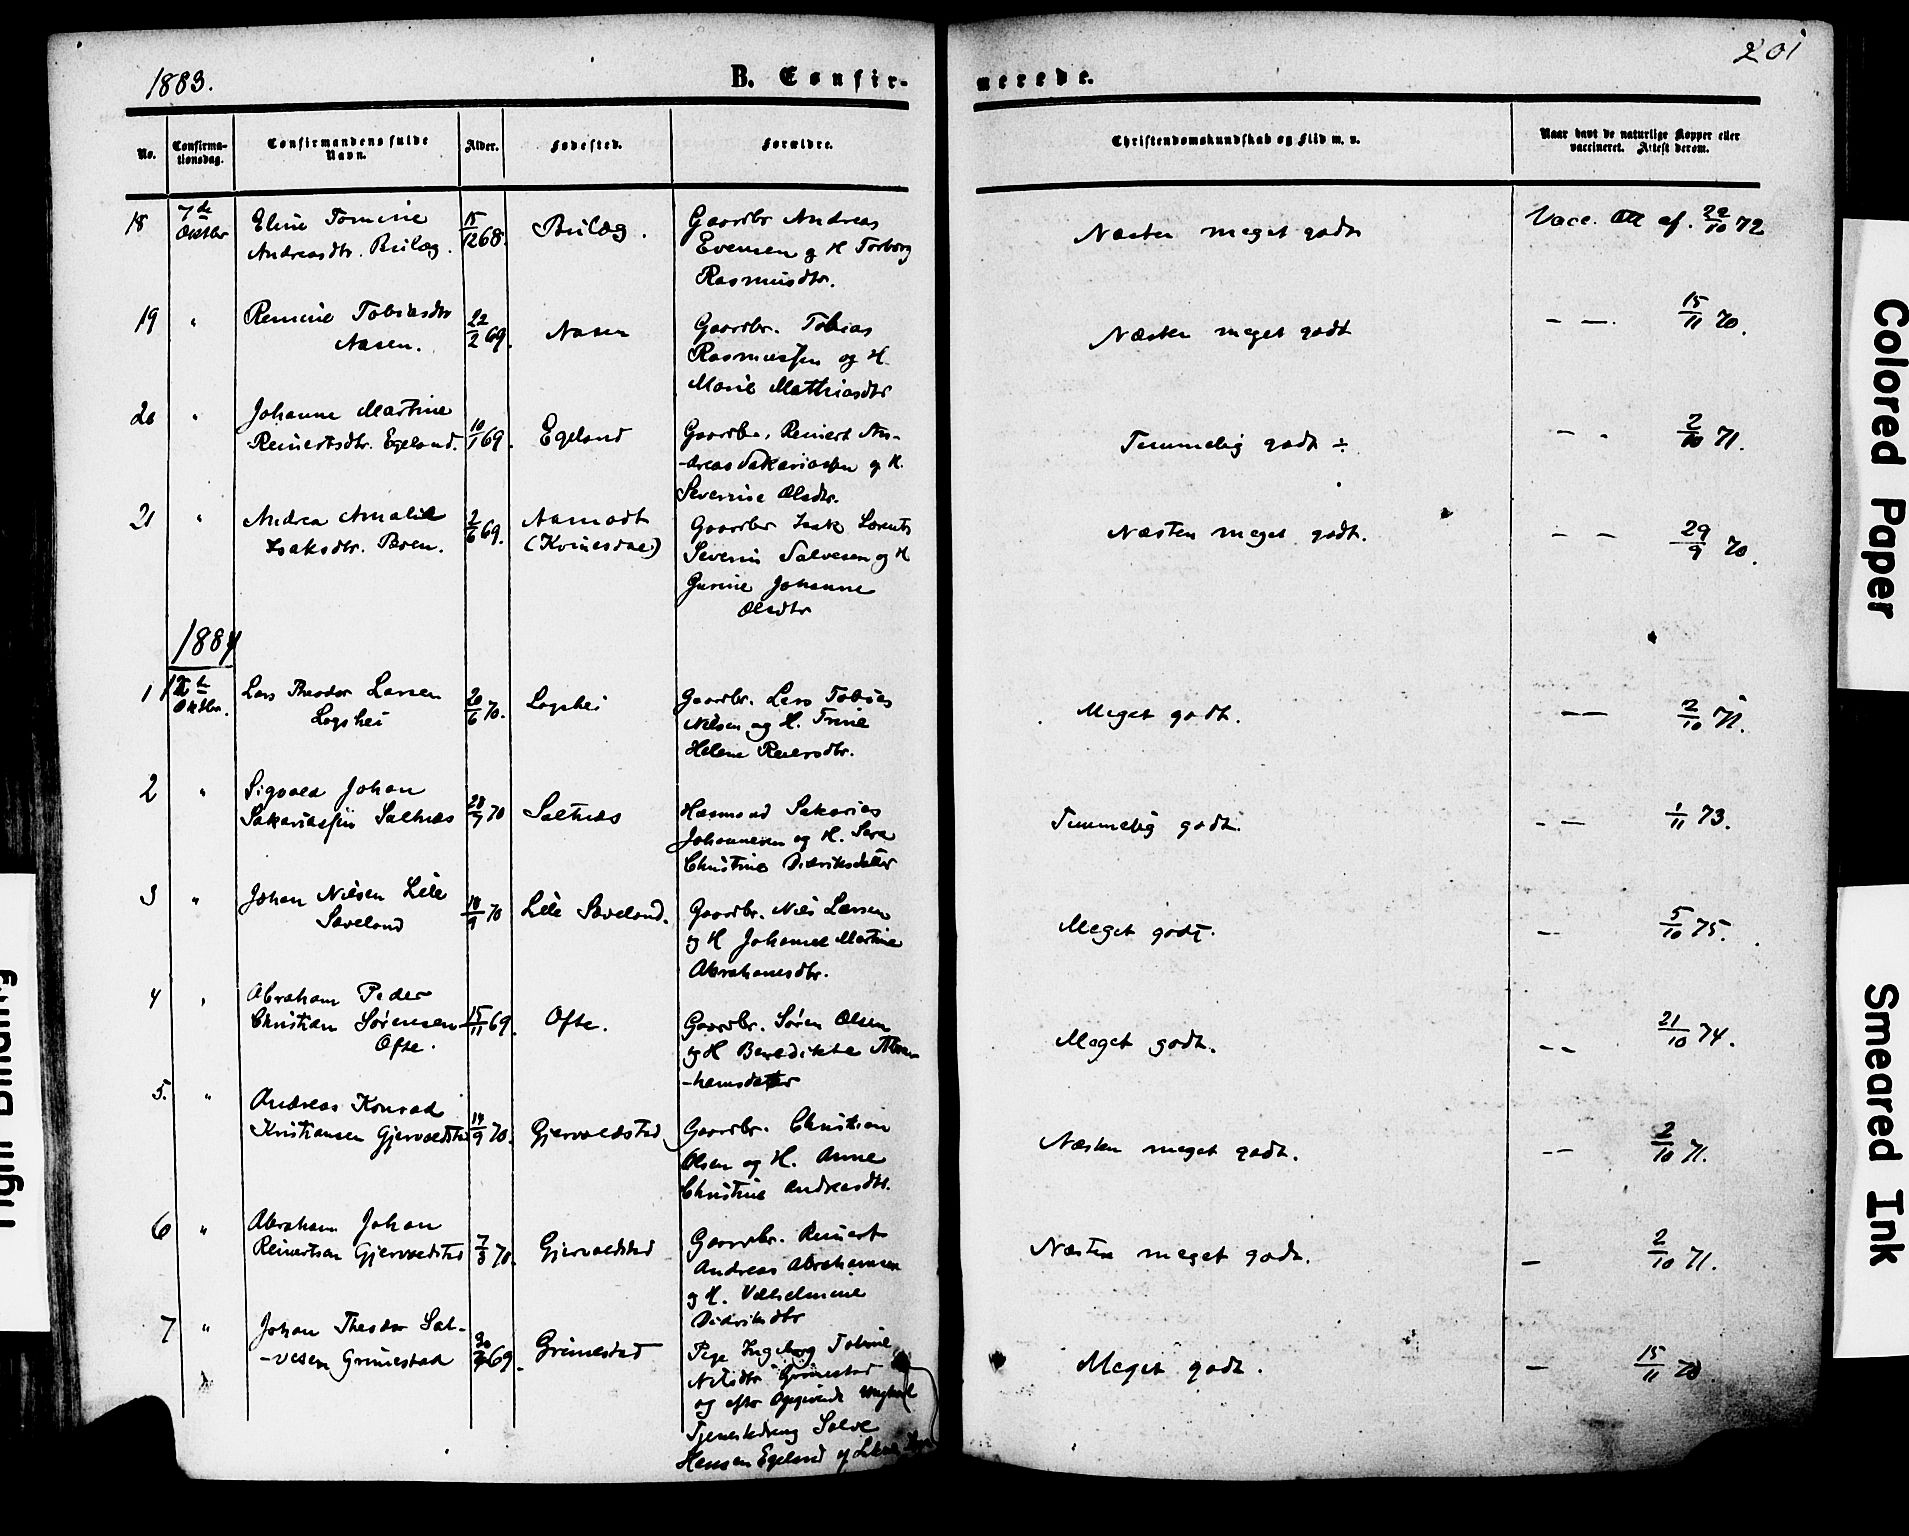 201
1883.
B. Confir-
merede.
No.
Confirma-
tionsdag.
Confirmandens fulde
Navn.
Alder.
Fødested.
Forældre.
Christendomskundskab og Flid m. v.
Naar havt de naturlige Kopper eller
vaccineret. Attest derom.
18 7de Oktbr Eline Tomine
Andreasdtr. Briilæg.
15/12 68. Briilæg.
Gaardbr Andreas
Evensen og H Torborg
Rasmusdtr.
Næsten meget godt
Vacc. Att af. 22/10 72
19 " Remine Tobiasdtr
Aasen.
22/2 69. Aasen
Gaardbr. Tobias
Rasmussen og H.
Marie Mathiasdtr
Næsten meget godt
— —. 15/11 70.
20 " Johanne Martine
Reinertsdtr. Egeland.
10/1 69. Egeland
Gaardbr. Reinert An-
-dreas Sakariassen og H.
Severine Olsdtr.
Temmelig godt ÷
— . 2/10 71.
21 " Andrea Amalie
Isaksdtr. Paven.
2/6 69. Aamodt
(Kvinesdal)
Gaardbr Isak Lorents
Severin Salvesen og H
Gurine Johanne
Olsdtr
Næsten meget godt.
— — 29/9 70.
1884
1 12te Oktbr. Lars Theodor Larsen
Løgshei
20/6 70. Løgshei
Gaardbr. Lars Tobias
Nilsen og H. Trine
Helene Reiersdtr.
Meget godt.
— — 2/10 71.
2 " Sigvald Johan
Sakariassen Saltnæs
28/7 70 Saltnæs
Husmand Sakarias
Johannesen og H. Sara
Christine Didriksdatter
Temmelig godt.
— — 1/11 73.
3 " Johan Nilsen Lile
Sæveland
18/9 70 Lile Sæveland.
Gaardbr. Nils Larsen
og H Johanne Martine
Abrahamsdtr.
Meget godt.
— 5/10 75.
4 " Abraham Peder
Christian Sørensen
Ofte.
15/11 69. Ofte.
Gaardbr. Søren Olsen
og H Benedikte Abra-
-hamsdatter
Meget godt.
— — 21/10 74.
5. " Andreas Konrad
Kristiansen Gjervoldstad
14/9 70. Gjervoldstad
Gaardbr. Christian
Olsen og H. Anne
Christine Andreasdtr.
Næsten meget godt.
— — 2/10 71.
6 " Abraham Johan
Reinertsen Gjervoldstad
7/3 70. Gjervoldstad
Gaardbr. Reinert
Andreas Abrahamsen
og H. Vilhelmine
Didriksdtr
Næsten meget godt.
— 2/10 71.
7 " Johan Theodor Sal-
-vesen Grimestad
69. Grimestad
Pige Ingeborg Tobine
Nilsdtr Grimestad
og efter Opgivende Ungkarl
Tjenestedreng Salve
Hansen Egeland
Meget godt.
— 15/11 70
Colored Paper
Smeared Ink
Tight Binding